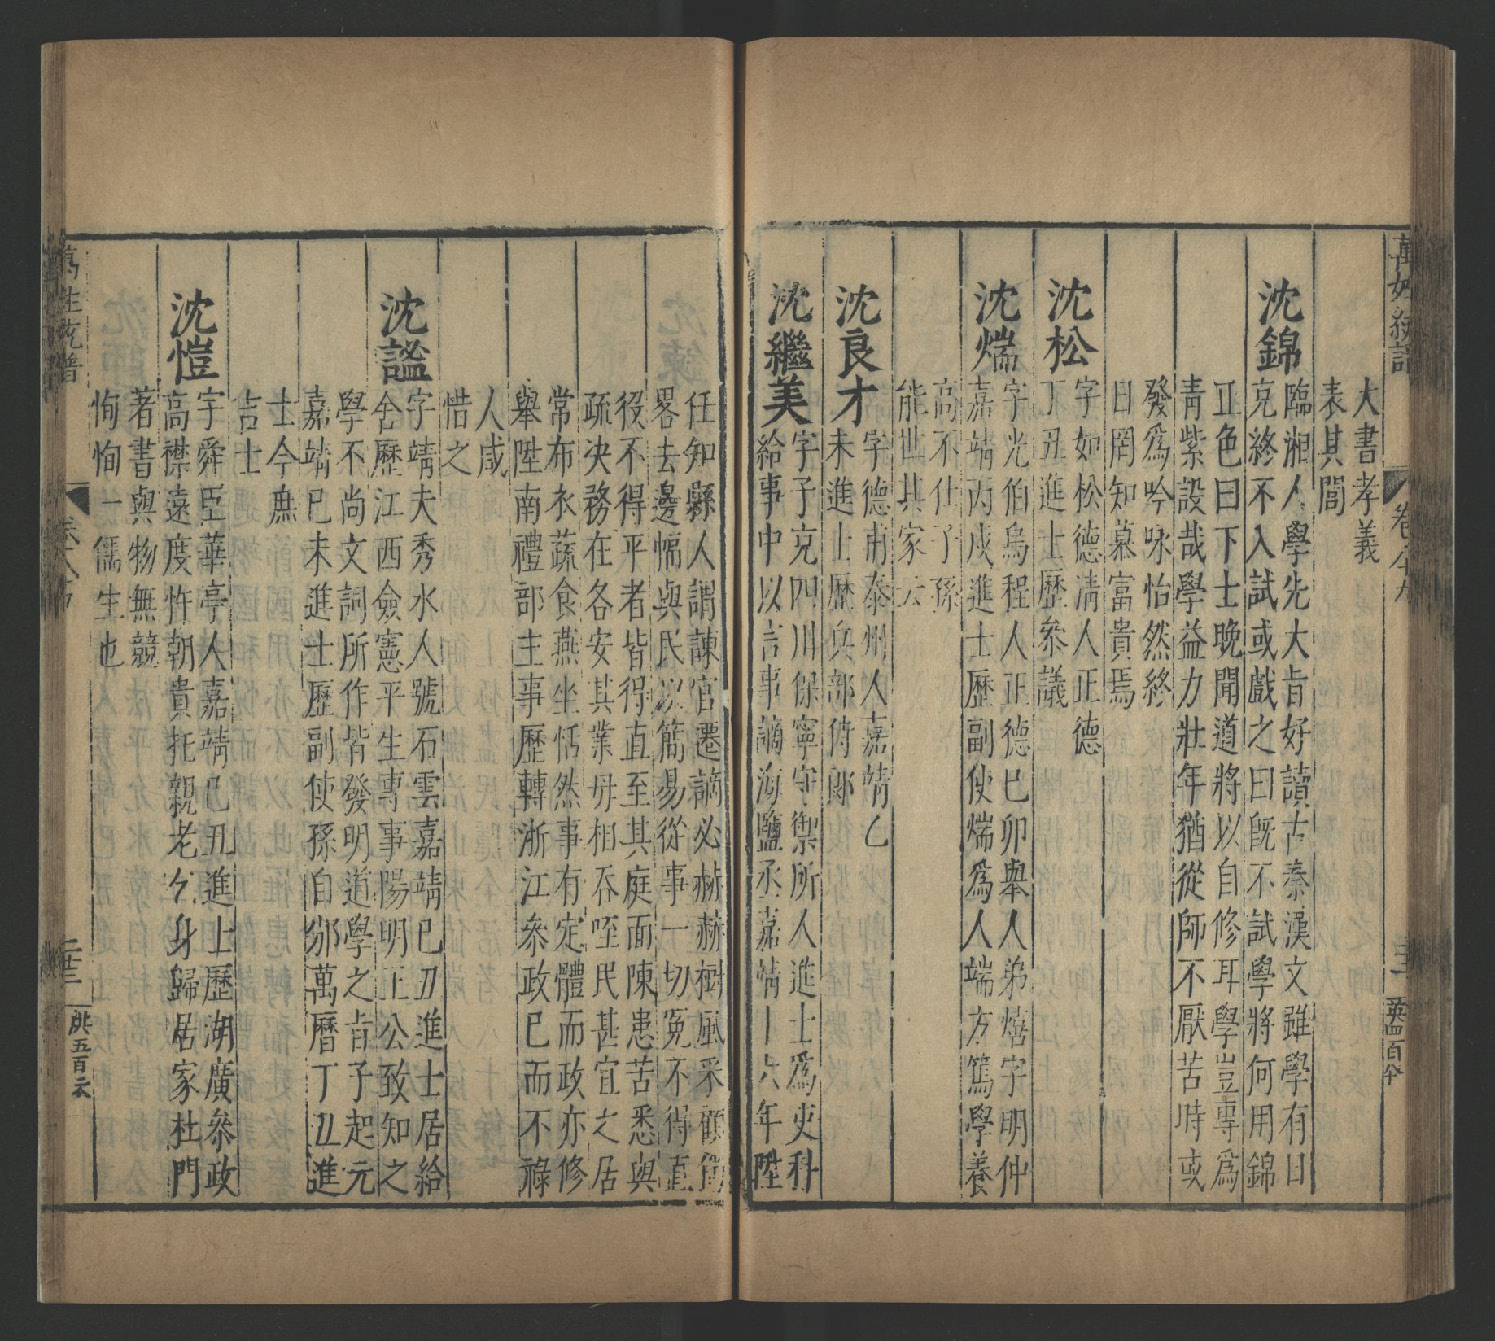 大書孝義
表其閭
沈錦
臨湘人學先大旨好讀古秦漢文雖學有日
克終不入試或戲之曰旣不試學將何用錦
正色曰下士晚聞道將以自修耳學豈專爲
靑紫設哉學益力壯年猶從師不厭苦時或
發爲吟咏怡然終
日罔知慕富貴焉
沈松
字如松德淸人正德
丁丑進士歷參議
沈煓
字光伯烏程人正德己卯舉人弟熺字明仲
嘉靖丙戌進士歷副使煓爲人端方篤學養
高不仕子孫
能世其家云
沈良才
字德甫泰州人嘉靖乙
未進士歷兵部侍郎
沈繼美
字子克四川保寧守禦所人進士爲吏科
給事中以言事謫海鹽丞嘉靖十六年陞
任知縣人謂諫官遷謫必赫赫樹風采顧
畧去邊幅與民以簡易從事一切冤不得直
役不得平者皆得直至其庭面陳患苦悉與
疏決務在各安其業毋相吞咥民甚宜之居
常布衣蔬食燕坐恬然事有定體而政亦修
舉陞南禮部主事歷轉浙江參政已而不祿
人咸
惜之
沈謐
字靖夫秀水人號石雲嘉靖己丑進士居給
舍歷江西僉憲平生專事陽明正公致知之
學不尚文詞所作皆發明道學之旨子起元
嘉靖己未進士歷副使孫自邠萬曆丁丑進
士今庶
吉士
沈愷
字舜臣華亭人嘉靖己丑進士歷湖廣參政
高襟遠度忤朝貴托親老乞身歸居家杜門
著書與物無競
恂恂一儒生也
萬姓統譜
卷八十九
二十三